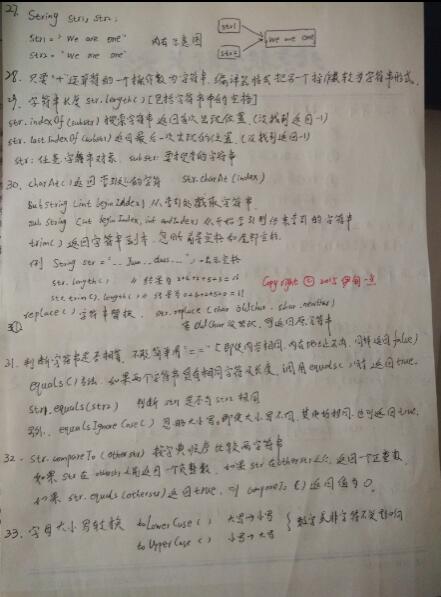 27. String str1, str2;
str1 = "We are one" 内存示意图 str1 we are one
str2 = "We are one" str2
28. 只要"+"运算符的一个操作数为字符串,编译器将另一个操作数转为字符串形式.
29. 字符串长度 str.length() [包括字符串中的空格]
str.indexOf(substr) 搜索字符串返回首次出现位置.(没找到返回-1)
str.lastIndexOf(substr) 返回最后一次出现的位置.(没找到返回-1)
str: 任意字符串对象. substr 要搜索的字符串
30. charAt() 返回索引处的字符 str.charAt(index)
SubString(int beginIndex) 从索引处截取字符串.
subString(int beginIndex, int endIndex) 从开始索引到结束索引的字符串
trim() 返回字符串副本,忽略前导空格和尾部空格.
例 String str = " Java class "; 空格
str.length(); // 结果为
str.trim().length(); // 结果为
Copyright © 2015
replace() 字符串替换. str.replace(char oldChar, char newChar)
若 oldChar 没出现,则返回原字符串
31. 判断字符串是否相等,不能简单用"=="(即使内容相同,内存地址不同,同样返回false)
equals()方法. 如果两个字符串具有相同字符及长度,调用equals()方法返回true.
str1.equals(str2) 判断str1是否与str2相同
另外. equalsIgnoreCase() 忽略大小写,即使大小写不同,其他的相同,也可返回true.
32. str.compareTo(otherstr) 按字典顺序比较两字符串
如果str在otherstr之前返回一个负整数,如果str在otherstr之后,返回一个正整数.
如果str.equals(otherstr)返回true, 则compareTo()返回值为0.
33. 字母大小写转换 toLowerCase() 大写→小写
toUpperCase() 小写→大写 数字或非字符不受影响